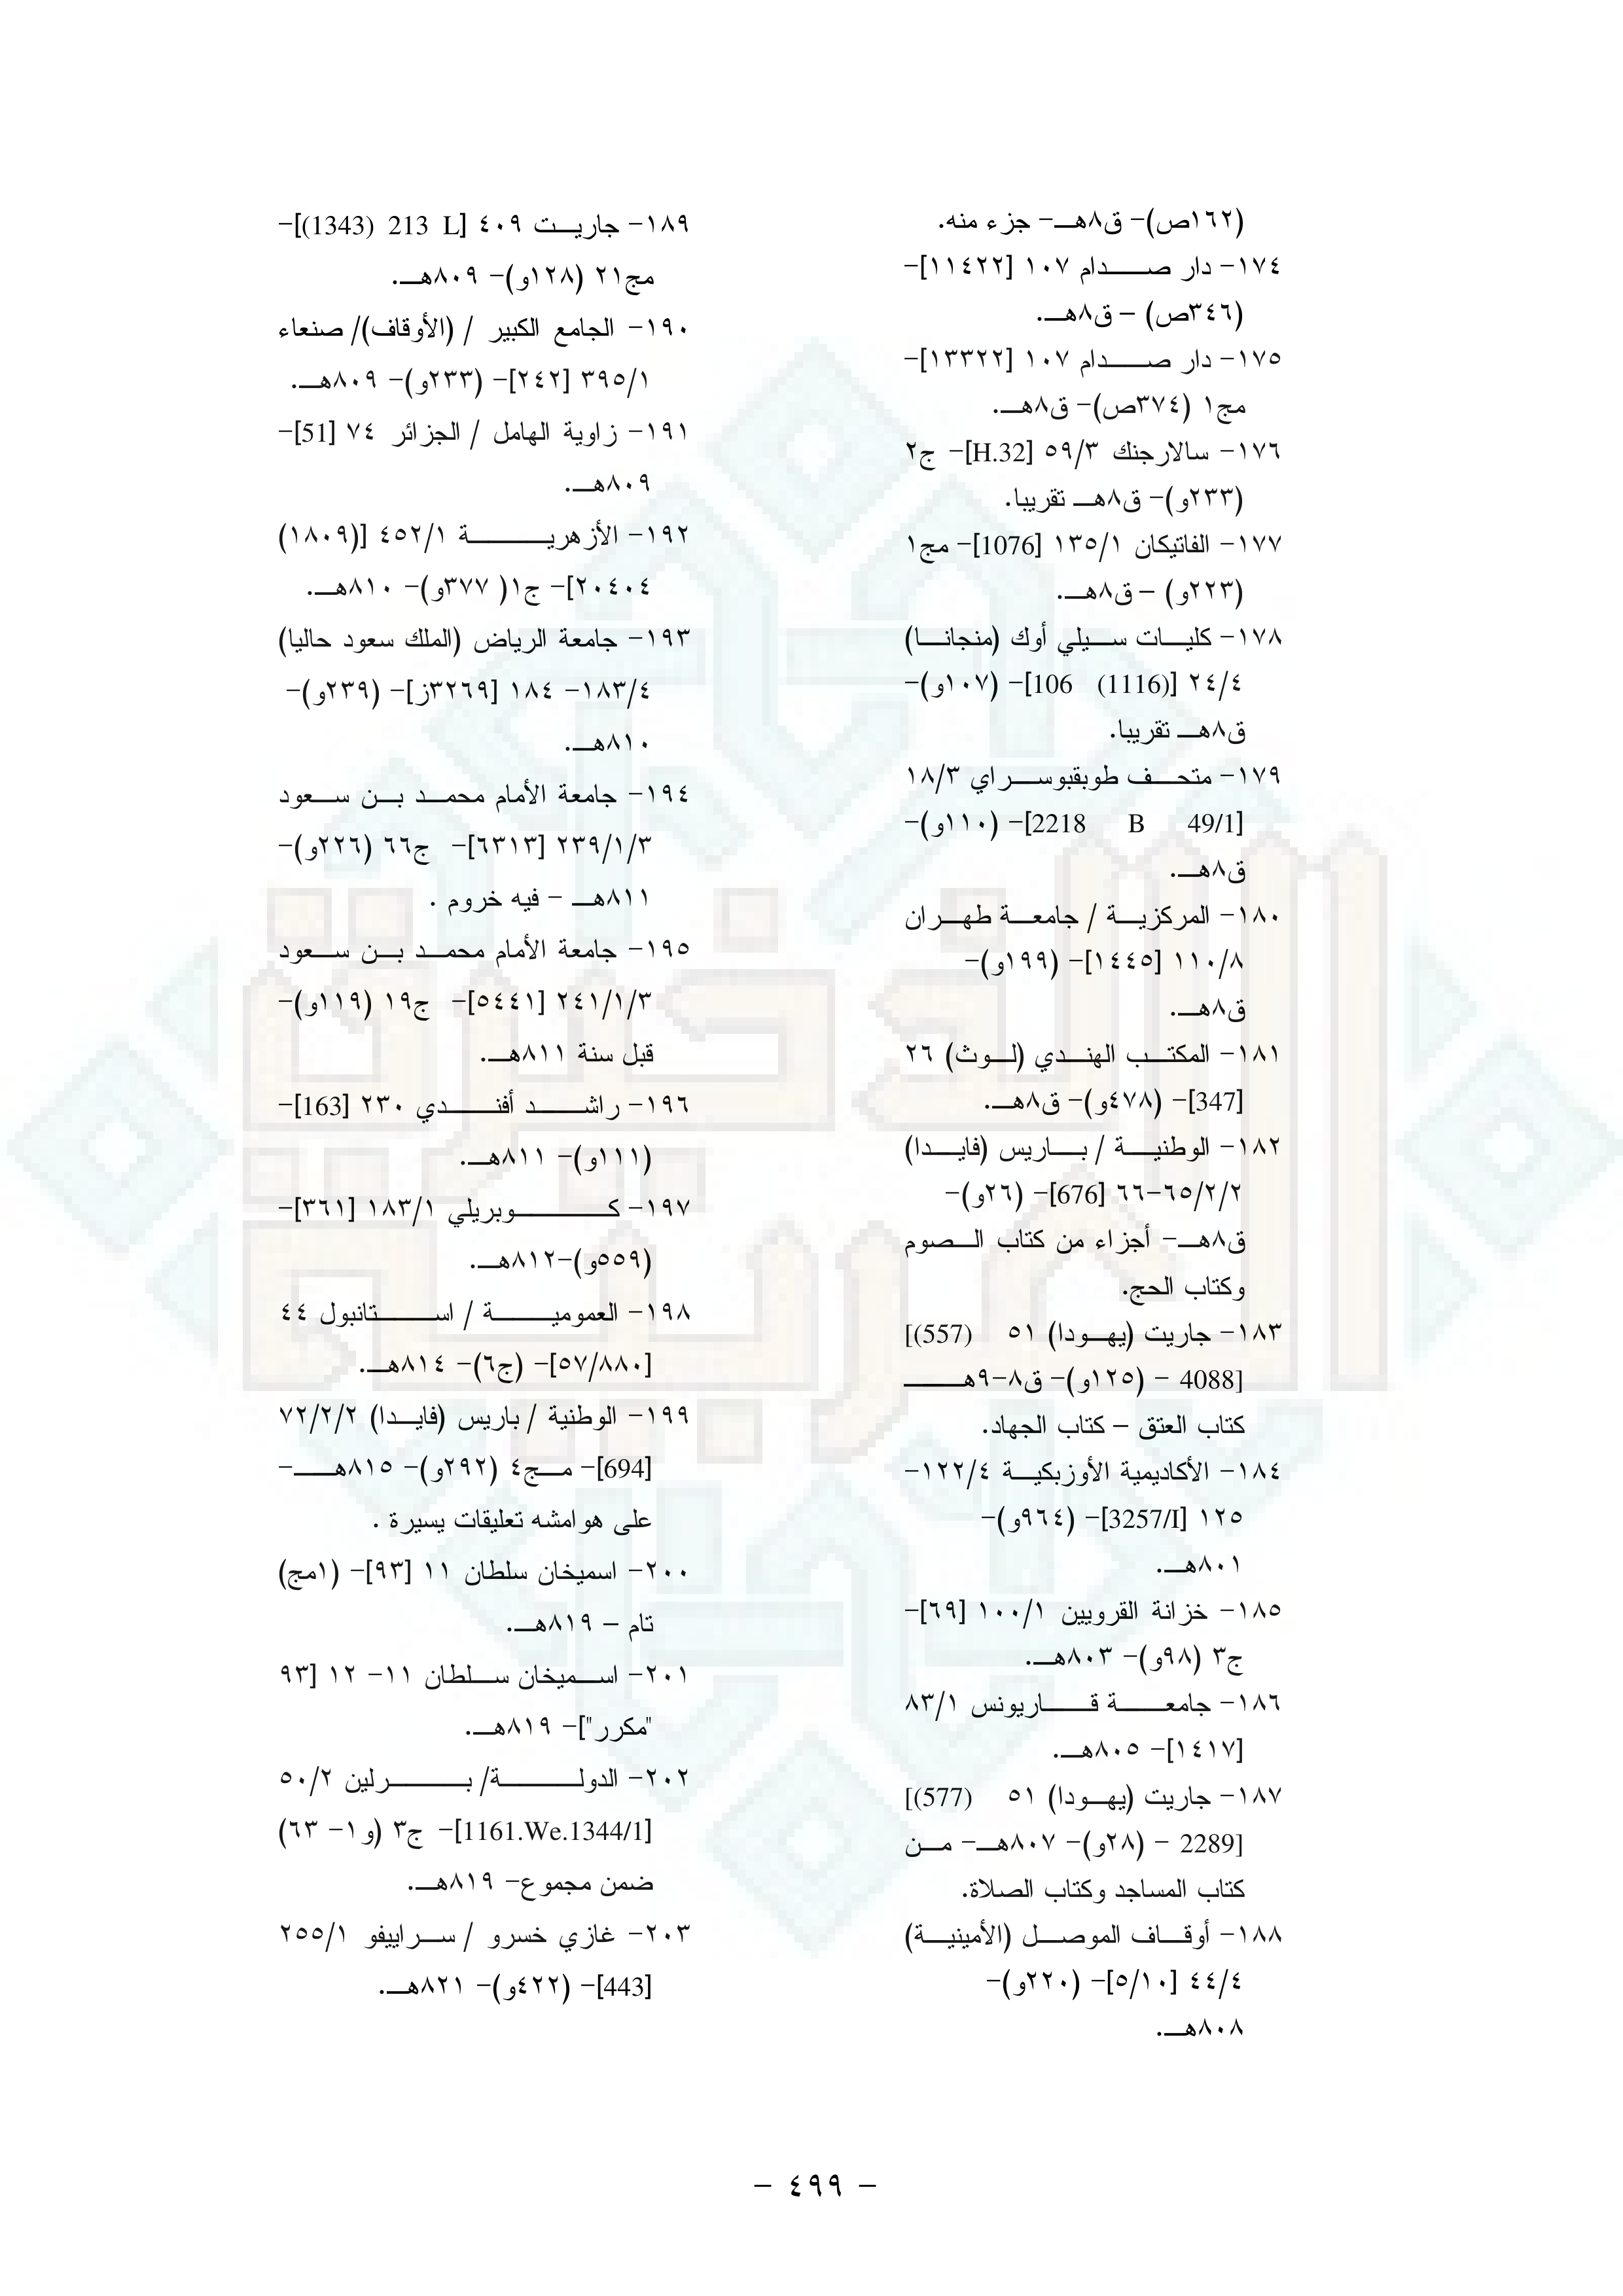 (١٦٢ص)- ق٨هـ- جزء منه.
١٧٤- دار صدام ١٠٧ [١١٤٢٢]-
(٣٤٦ص) – ق٨هـ.
١٧٥- دار صدام ١٠٧ [١٣٣٢٢]-
مج١ (٣٧٤ص)- ق٨هـ.
١٧٦- سالارجنك ٥٩/٣ [H.32]- ج٢
(٢٣٣و)- ق٨هـ تقريبا.
١٧٧- الفاتيكان ١٣٥/١ [1076]- مج١
(٢٢٣و) – ق٨هـ.
١٧٨- كليات سيلي أوك (منجانا)
٢٤/٤ [106 (1116)]- (١٠٧و)-
ق٨هـ تقريبا.
١٧٩- متحف طوبقبوسراي ١٨/٣
[2218 B 49/1]- (١١٠و)-
ق٨هـ.
١٨٠- المركزية / جامعة طهران
١١٠/٨ [١٤٤٥]- (١٩٩و)-
ق٨هـ.
١٨١- المكتب الهندي (لوث) ٢٦
[347]- (٤٧٨و)- ق٨هـ.
١٨٢- الوطنية / باريس (فايدا)
٦٥/٢/٢-٦٦ [676]- (٢٦و)-
ق٨هـ- أجزاء من كتاب الصوم
وكتاب الحج.
١٨٣- جاريت (يهودا) ٥١ [(557)
4088] - (١٢٥و)- ق٨-٩هـ
كتاب العتق – كتاب الجهاد.
١٨٤- الأكاديمية الأوزبكية ١٢٢/٤-
١٢٥ [3257/I]- (٩٦٤و)-
٨٠١هـ.
١٨٥- خزانة القرويين ١٠٠/١ [٦٩]-
ج٣ (٩٨و)- ٨٠٣هـ.
١٨٦- جامعة قاريونس ٨٣/١
[١٤١٧]- ٨٠٥هـ.
١٨٧- جاريت (يهودا) ٥١ [(577)
2289] - (٢٨و)- ٨٠٧هـ- من
كتاب المساجد وكتاب الصلاة.
١٨٨- أوقاف الموصل (الأمينية)
٤٤/٤ [٥/١٠]- (٢٢٠و)-
٨٠٨هـ.
١٨٩- جاريت ٤٠٩ [213 L (1343)]-
مج٢١ (١٢٨و)- ٨٠٩هـ.
١٩٠- الجامع الكبير / (الأوقاف)/ صنعاء
٣٩٥/١ [٢٤٢]- (٢٣٣و)- ٨٠٩هـ.
١٩١- زاوية الهامل / الجزائر ٧٤ [51]-
٨٠٩هـ.
١٩٢- الأزهرية ٤٥٢/١ [(١٨٠٩)
٢٠٤٠٤]- ج١( ٣٧٧و)- ٨١٠هـ.
١٩٣- جامعة الرياض (الملك سعود حاليا)
١٨٣/٤- ١٨٤ [٣٢٦٩ز]- (٢٣٩و)-
٨١٠هـ.
١٩٤- جامعة الأمام محمد بن سعود
٢٣٩/١/٣ [٦٣١٣]- ج٦٦ (٢٢٦و)-
٨١١هـ – فيه خروم .
١٩٥- جامعة الأمام محمد بن سعود
٢٤١/١/٣ [٥٤٤١]- ج١٩ (١١٩و)-
قبل سنة ٨١١هـ.
١٩٦- راشد أفندي ٢٣٠ [163]-
(١١١و)- ٨١١هـ.
١٩٧- كوبريلي ١٨٣/١ [٣٦١]-
(٥٥٩و)-٨١٢هـ.
١٩٨- العمومية / استانبول ٤٤
[٥٧/٨٨٠]- (ج٦)- ٨١٤هـ.
١٩٩- الوطنية / باريس (فايدا) ٧٢/٢/٢
[694]- مج٤ (٢٩٢و)- ٨١٥هـ-
على هوامشه تعليقات يسيرة .
٢٠٠- اسميخان سلطان ١١ [٩٣]- (١مج)
تام – ٨١٩هـ.
٢٠١- اسميخان سلطان ١١- ١٢ [٩٣
"مكرر"]- ٨١٩هـ.
٢٠٢- الدولة/ برلين ٥٠/٢
[1161.We.1344/1]- ج٣ (و١- ٦٣)
ضمن مجموع- ٨١٩هـ.
٢٠٣- غازي خسرو / سراييفو ٢٥٥/١
[443]- (٤٢٢و)- ٨٢١هـ.
- ٤٩٩ -